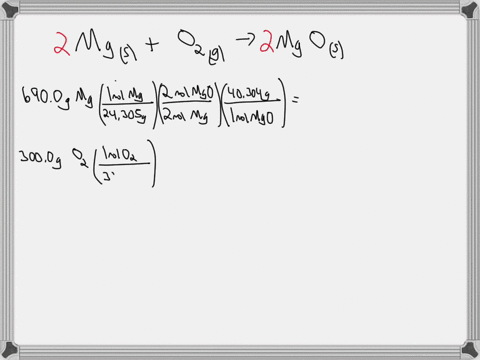 2Mg(s) + O2(g) → 2MgO(s)
690.0g Mg (1mol Mg / 24.305g)(2mol MgO / 2mol Mg)(40.304g / 1mol MgO) =
300.0g O2 (1mol O2 / 3